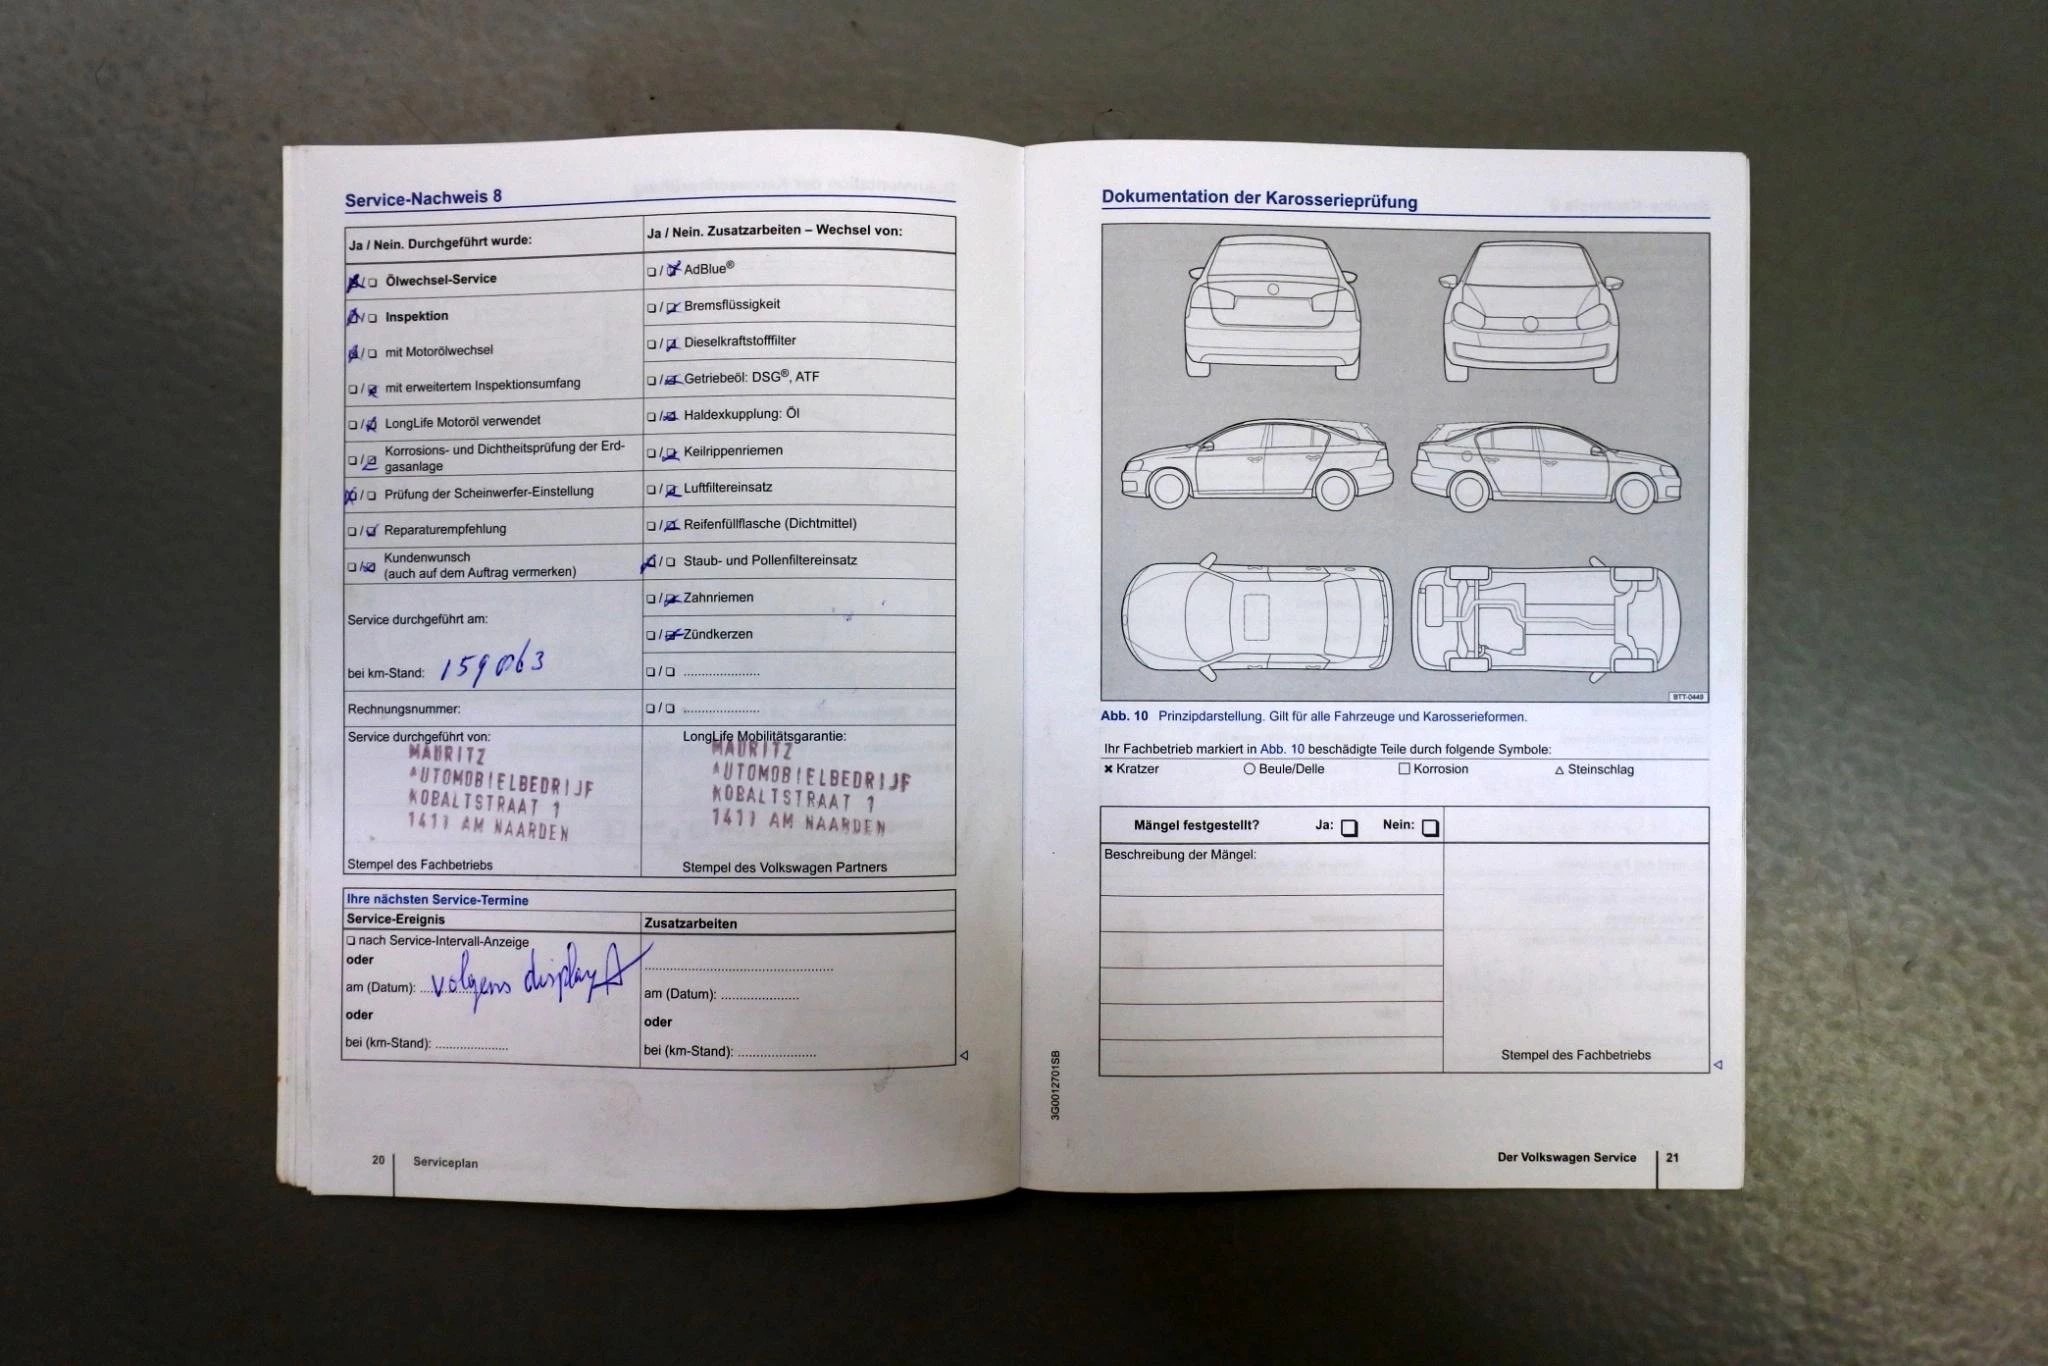 Service-Nachweis 8
Ja / Nein. Durchgeführt wurde:
Ölwechsel-Service
Inspektion
mit Motorölwechsel
mit erweitertem Inspektionsumfang
LongLife Motoröl verwendet
Korrosions- und Dichtheitsprüfung der Erd-
gasanlage
Prüfung der Scheinwerfer-Einstellung
Reparaturempfehlung
Kundenwunsch
(auch auf dem Auftrag vermerken)
Service durchgeführt am:
bei km-Stand: 159063
Rechnungsnummer:
Ja / Nein. Zusatzarbeiten – Wechsel von:
AdBlue®
Bremsflüssigkeit
Dieselkraftstofffilter
Getriebeöl: DSG®, ATF
Haldexkupplung: Öl
Keilrippenriemen
Luftfiltereinsatz
Reifenfüllflasche (Dichtmittel)
Staub- und Pollenfiltereinsatz
Zahnriemen
Zündkerzen
Service durchgeführt von:
MAURITZ
AUTOMOBIELBEDRIJF
KOBALTSTRAAT 1
1411 AM NAARDEN
Stempel des Fachbetriebs
LongLife Mobilitätsgarantie:
MAURITZ
AUTOMOBIELBEDRIJF
KOBALTSTRAAT 1
1411 AM NAARDEN
Stempel des Volkswagen Partners
Ihre nächsten Service-Termine
Service-Ereignis
nach Service-Intervall-Anzeige
oder
am (Datum): volgens display
oder
bei (km-Stand):
Zusatzarbeiten
am (Datum):
oder
bei (km-Stand):
20 Serviceplan
Dokumentation der Karosserieprüfung
BTT-0449
Abb. 10 Prinzipdarstellung. Gilt für alle Fahrzeuge und Karosserieformen.
Ihr Fachbetrieb markiert in Abb. 10 beschädigte Teile durch folgende Symbole:
Kratzer Beule/Delle Korrosion Steinschlag
Mängel festgestellt? Ja: Nein:
Beschreibung der Mängel:
Stempel des Fachbetriebs
3G0012701SB
Der Volkswagen Service 21